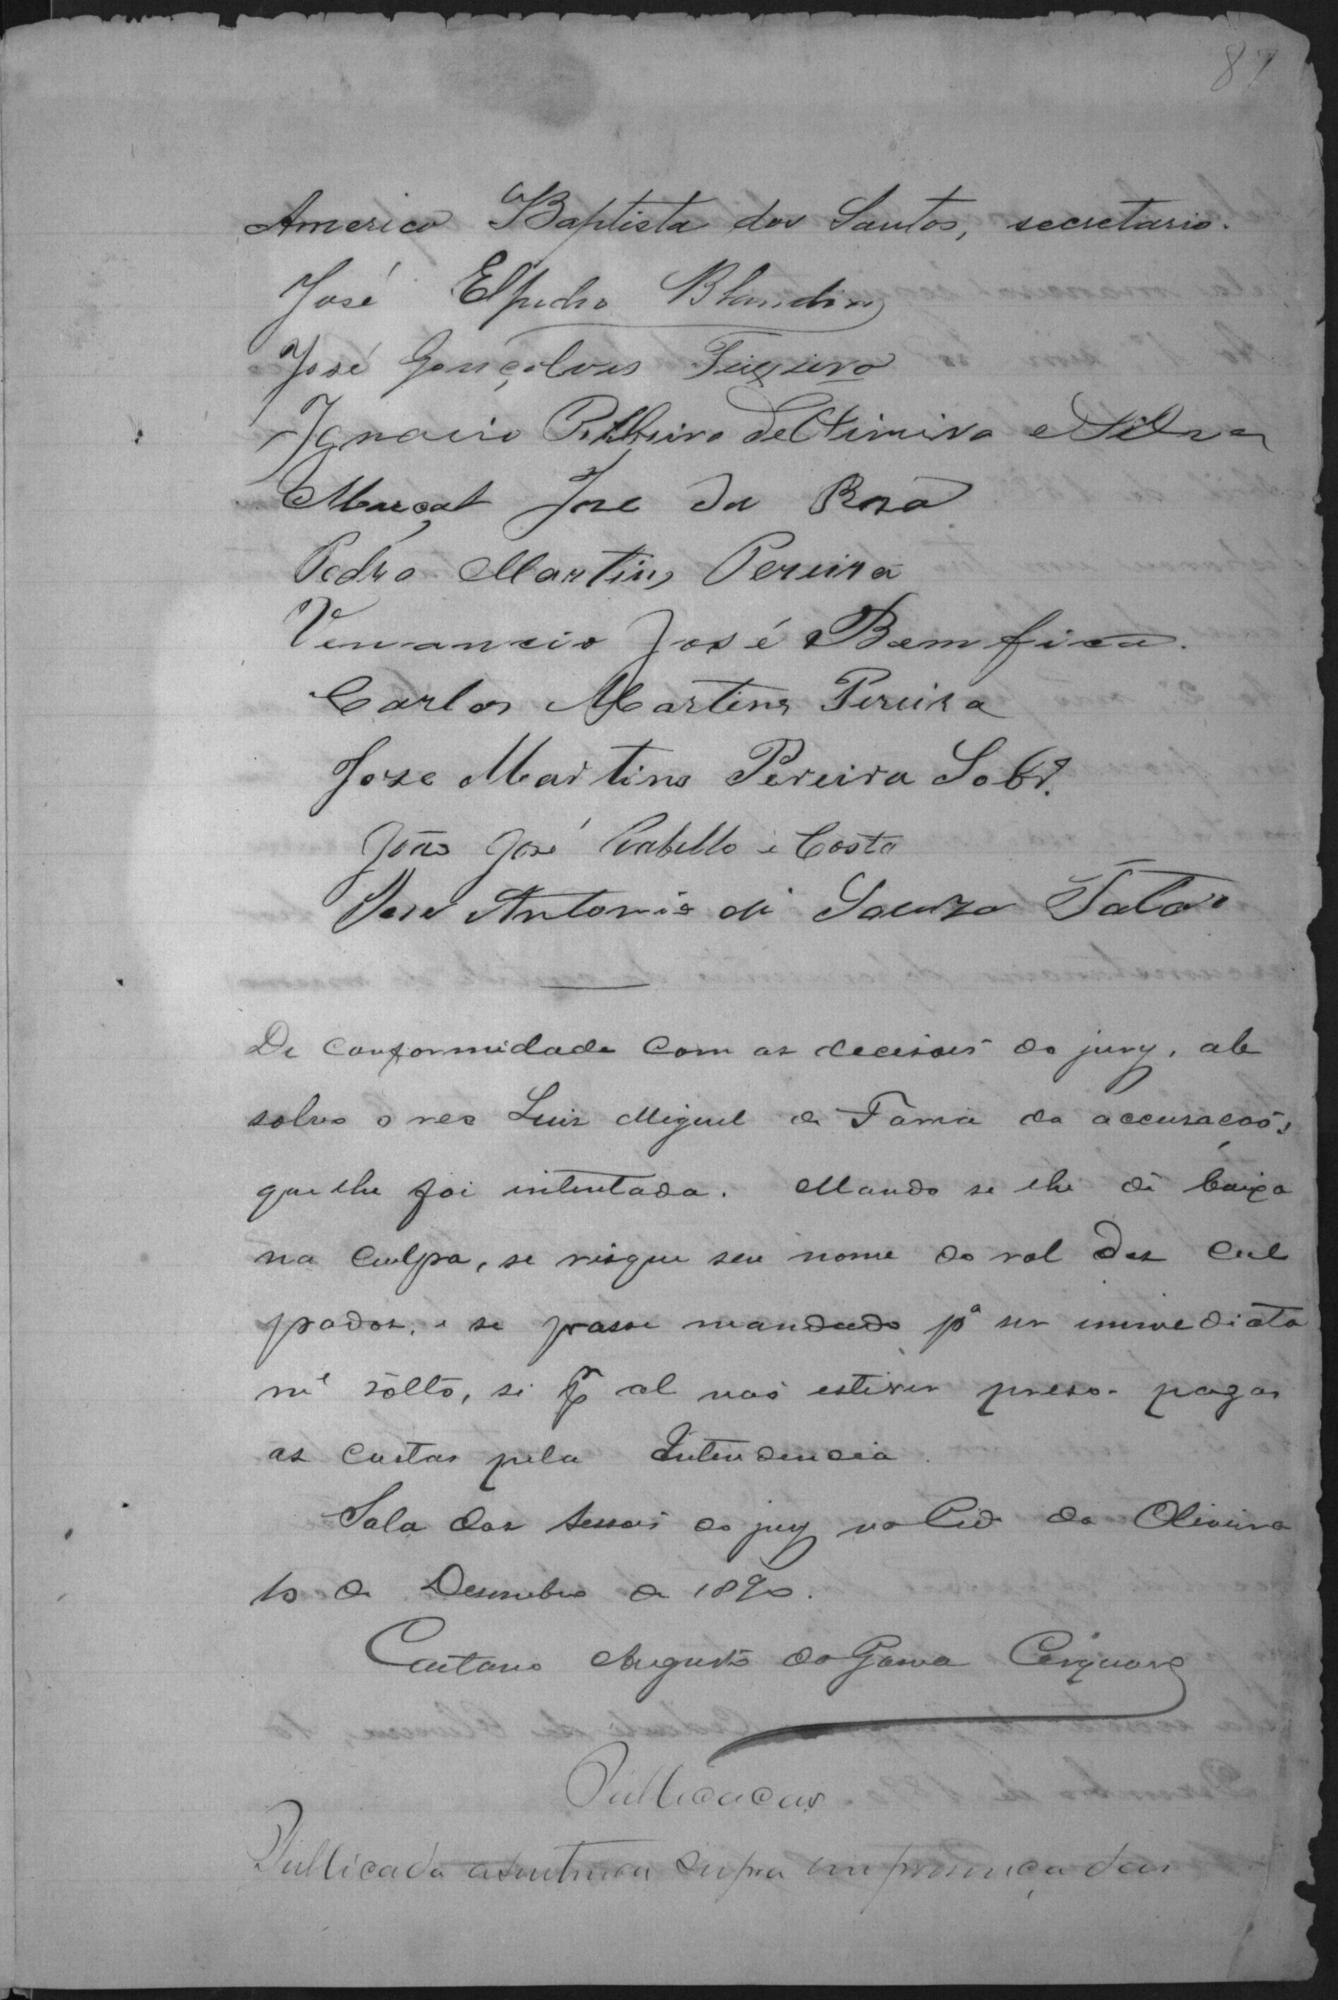 87
Americo Baptista dos Santos, secretario.
José Elpidio Blandin
José Gonçalves
Ignacio Ribeiro de Oliveira e Silva
Marçal Jose da Rosa
Pedro Martins Pereira
Venancio José Bemfica.
Carlos Martins Pereira
Jose Martins Pereira Sobr.º
João José Rabello e Costa
Jose Antonio de Souza
De conformidade com as decisões do jury, ab
solvo o reo Luis Miguel de Faria da accusação,
que lhe foi intentada. Mando se lhe dê baixa
na culpa, se risque seu nome do rol dos cul
pados, e se passe mandado pª ser immediata
mᵉ sôlto, si pʳ al não estiver preso. pagas
as custas pela Intendencia.
Sala das sessões do jury na Cidᵉ da Oliveira
10 de Desembro de 1890.
Caetano Augusto da Gama Cerqueira
Publicacao
Publicada a sentença supra em presença das